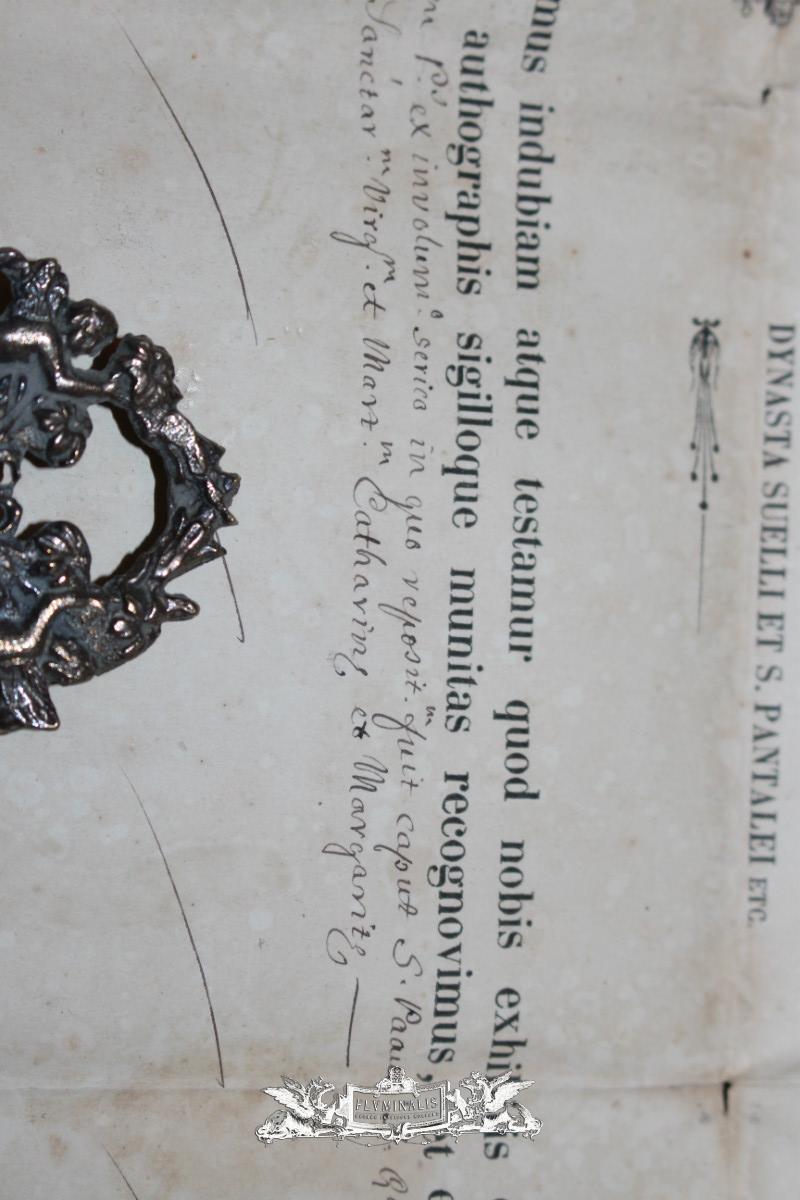 DYNASTA SUELLI ET S. PANTALEI ETC.
mus indubiam atque testamur quod nobis exhi is
authographis sigilloque munitas recognovimus, et e
m P.s ex involum.o serico in quo reposit.m fuit caput S.
Sanctar.m Virg.m et Mart.m Catharinę et Margaritę
FLVMINALIS